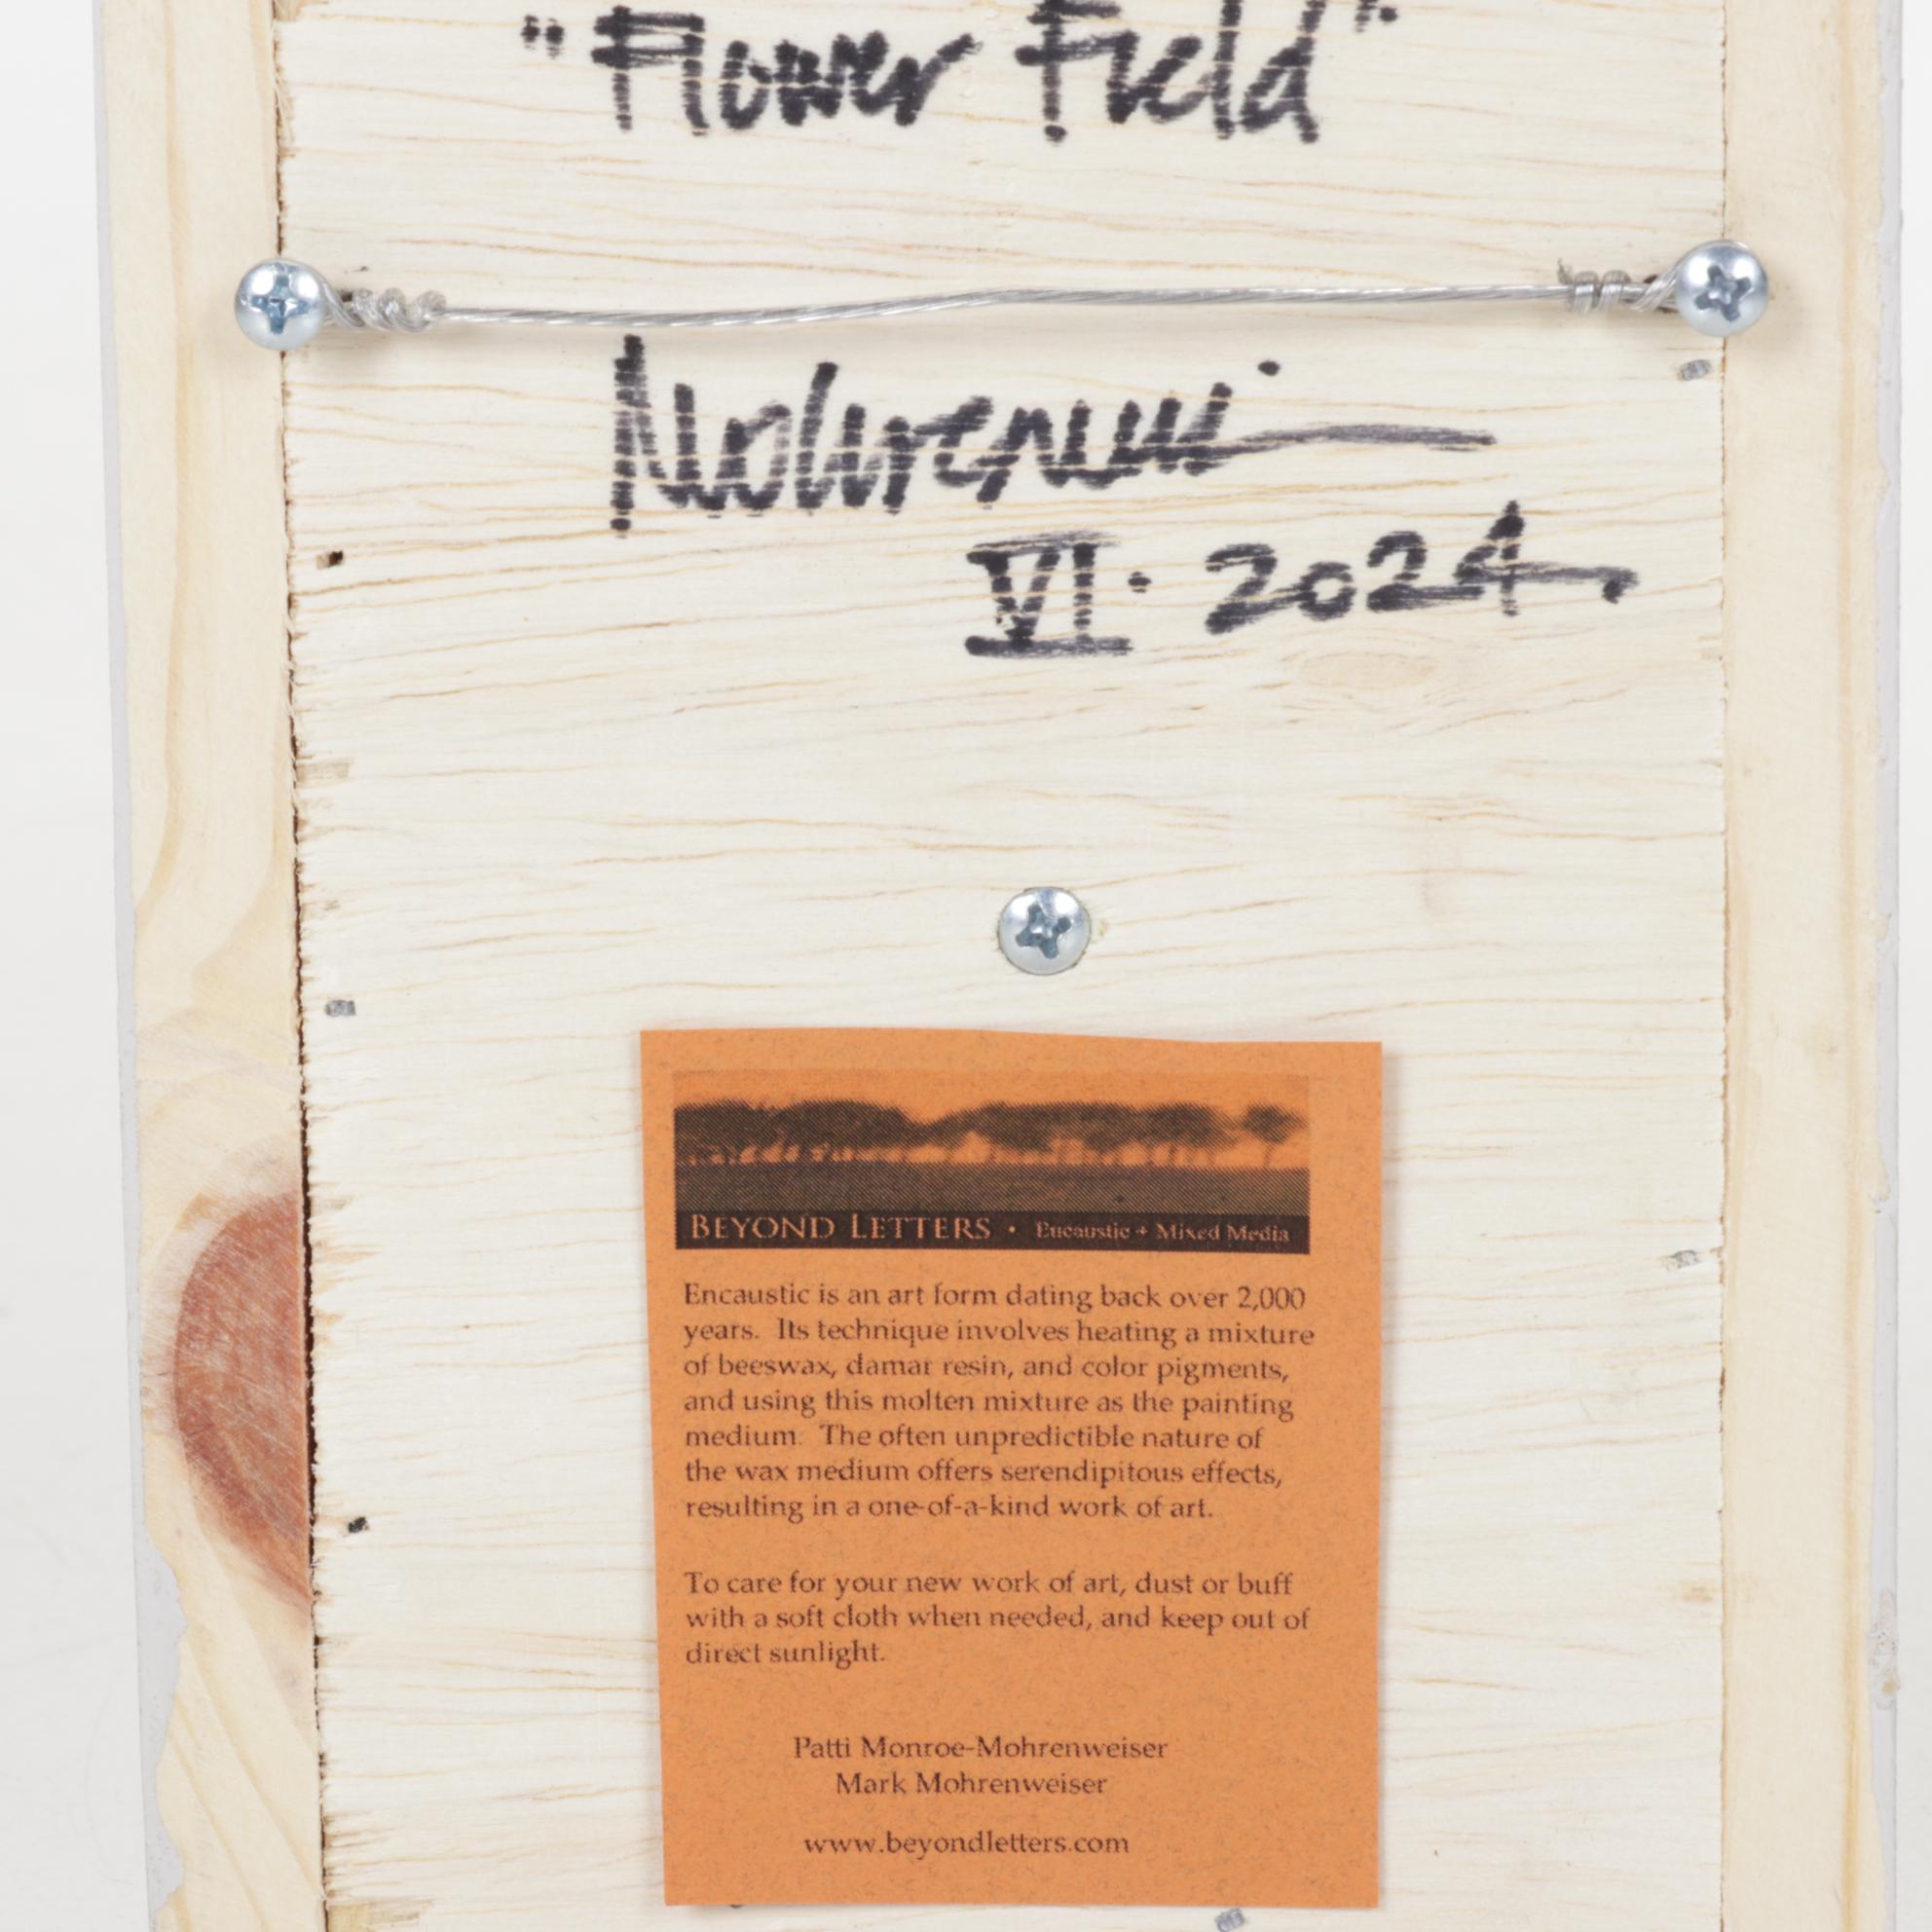 "Flower Field"
VI · 2024
BEYOND LETTERS • Encaustic + Mixed Media
Encaustic is an art form dating back over 2,000
years. Its technique involves heating a mixture
of beeswax, damar resin, and color pigments,
and using this molten mixture as the painting
medium. The often unpredictible nature of
the wax medium offers serendipitous effects,
resulting in a one-of-a-kind work of art.
To care for your new work of art, dust or buff
with a soft cloth when needed, and keep out of
direct sunlight.
Patti Monroe-Mohrenweiser
Mark Mohrenweiser
www.beyondletters.com